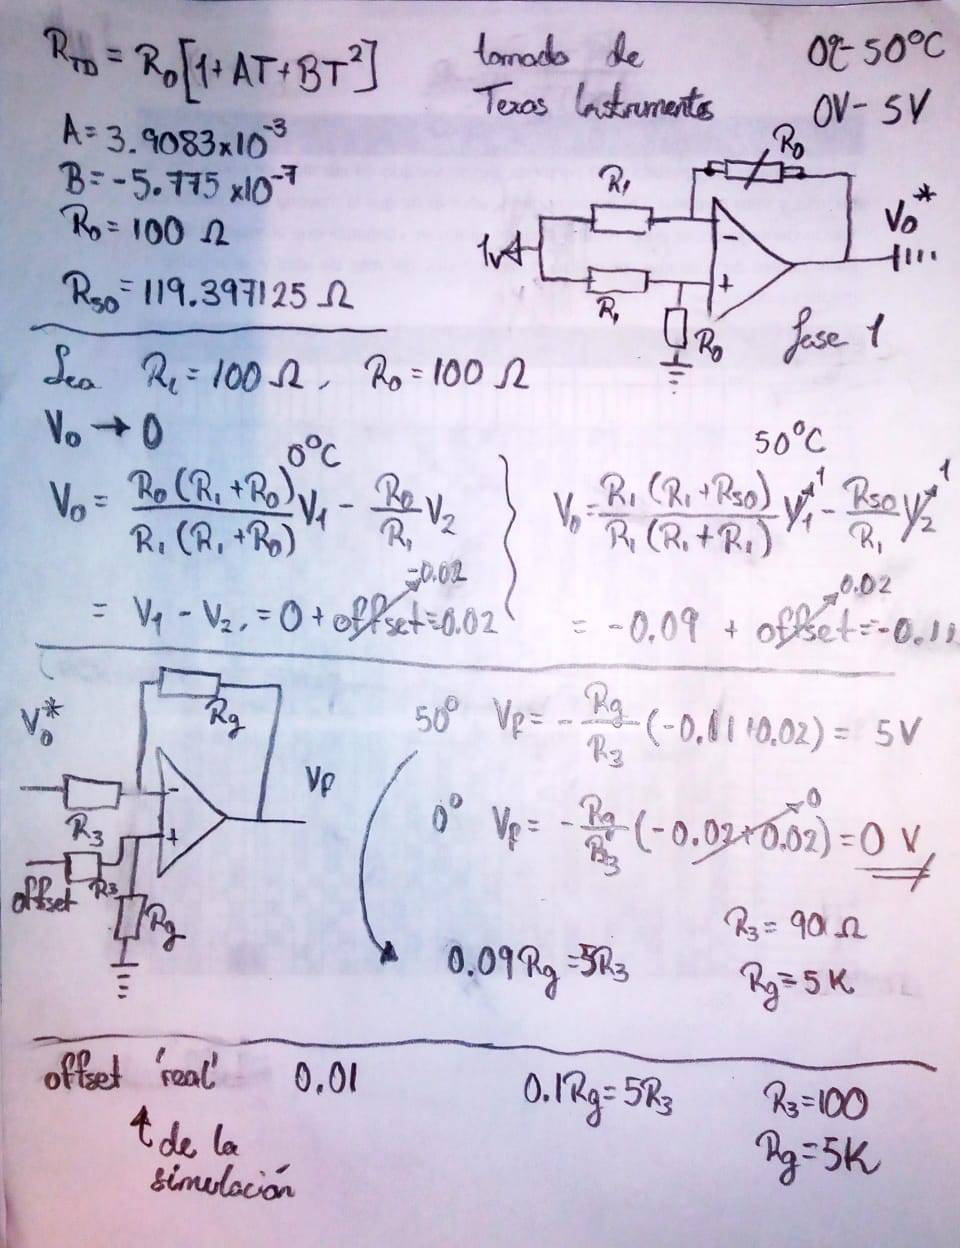 R_TD = R₀[1+AT+BT²]
tomado de
Texas Instruments
0°-50°C
0V- 5V
A=3.9083x10⁻³
B=-5.775 x10⁻⁷
R₀=100 Ω
R₅₀=119.397125 Ω
R₀
R₁
1V
R₁
R₀
V₀*
fase 1
-
+
Sea R₁=100Ω, R₀=100 Ω
V₀ → 0
0°C
V₀ = R₀(R₁+R₀)/R₁(R₁+R₀) V₁ - R₀/R₁ V₂
-0.02
= V₁ - V₂, = 0 + offset=0.02
50°C
V₀=R₁(R₁+R₅₀)/R₁(R₁+R₁) V₁ 1 - R₅₀/R₁ V₂ 1
0.02
= -0.09 + offset=-0.11
V₀*
Rg
R₃
-
+
Vp
R₃
offset
Rg
50° Vp= -Rg/R₃ (-0.11+0.02) = 5V
0° Vp= -Rg/R₃ (-0.02+0.02) 0 =0 V
0.09Rg=5R₃
R₃= 90Ω
Rg=5K
offset 'real' 0.01
de la
simulación
0.1Rg=5R₃
R₃=100
Rg=5K